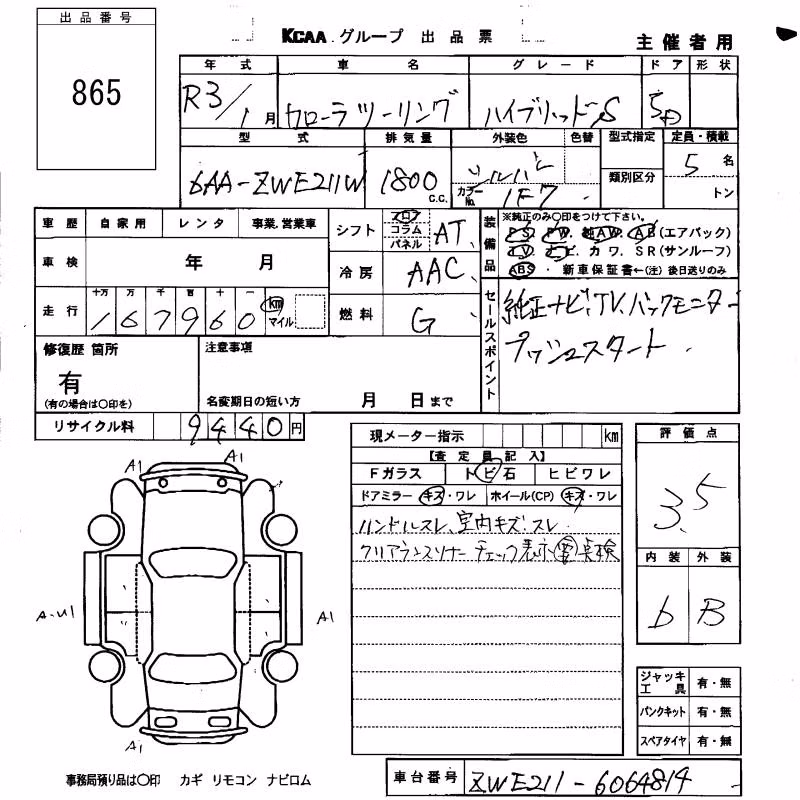 出品番号
865
KCAA グループ 出品票
主催者用
年式 車名 グレード ドア 形状
R3/1月 カローラツーリング ハイブリッドS 5D
型式 排気量 外装色 色替 型式指定 定員・積載
6AA-ZWE211W 1800 C.C. シルバー 類別区分 5名
カラーNo. 1F7 トン
車歴 自家用 レンタ 事業.営業車
シフト フロア コラム パネル AT
装備品 ※純正のみ〇印をつけて下さい。
PS. PW. 純AW. AB(エアバック)
TV. ナビ. カワ. SR(サンルーフ)
ABS. 新車保証書←(注) 後日送りのみ
車検 年 月
冷房 AAC
走行 十万 万 千 百 十 一
167960 km マイル
燃料 G
セールスポイント 純正ナビ、TV、バックモニター
プッシュスタート
修復歴 箇所 注意事項
有
(有の場合は〇印を) 名変期日の短い方 月 日まで
リサイクル料 9440円
現メーター指示 km
【査定員記入】
Fガラス トビ石 ヒビワレ
ドアミラー キズ・ワレ ホイール(CP) キズ・ワレ
ハンドルスレ、室内キズ.スレ
クリアランスソナー チェック表示 点検
評価点
3.5
内装 外装
b B
A1 A1
A-U1 A1
A1
ジャッキ工具 有・無
パンクキット 有・無
スペアタイヤ 有・無
事務局預り品は〇印 カギ リモコン ナビロム
車台番号 ZWE211-6064814